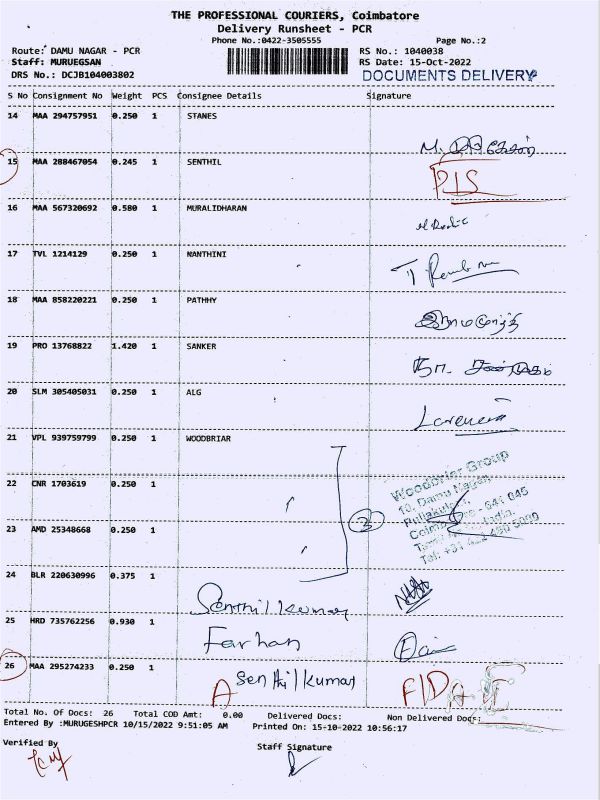 THE PROFESSIONAL COURIERS, Coimbatore
Delivery Runsheet - PCR
Phone No.:0422-3505555 Page No.:2
Route: DAMU NAGAR - PCR RS No.: 1040038
Staff: MURUEGSAN RS Date: 15-Oct-2022
DRS No.: DCJB104003802 DOCUMENTS DELIVERY
S No Consignment No Weight PCS Consignee Details Signature
14 MAA 294757951 0.250 1 STANES
15 MAA 288467054 0.245 1 SENTHIL
16 MAA 567320692 0.580 1 MURALIDHARAN
17 TVL 1214129 0.250 1 NANTHINI
18 MAA 858220221 0.250 1 PATHHY
19 PRO 13768822 1.420 1 SANKER
20 SLM 305405031 0.250 1 ALG
21 VPL 939759799 0.250 1 WOODBRIAR
Woodbriar Group
22 CNR 1703619 0.250 1
10, Damu Nagar,
23 AMD 25348668 0.250 1
24 BLR 220630996 0.375 1
Senthil kumar
25 HRD 735762256 0.930 1 Farhan
26 MAA 295274233 0.250 1 A Senthil kumar
Total No. Of Docs: 26 Total COD Amt: 0.00 Delivered Docs: Non Delivered Docs:
Entered By :MURUGESHPCR 10/15/2022 9:51:05 AM Printed On: 15-10-2022 10:56:17
Verified By Staff Signature